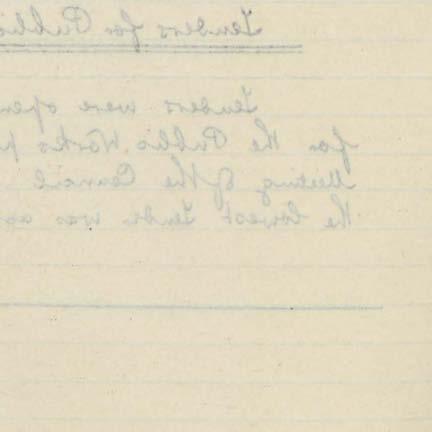 Tenders for Public
Tenders were open
for the Public Works p
Meeting of the Council
the lowest Tender was ac